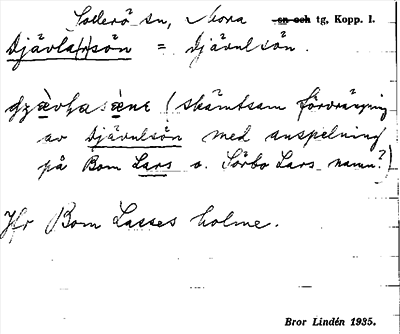 Sollerö sn, Mora sn och tg, Kopp. l.
Djävla(r)sön = Djävulsön.
(skämtsam förvrängning
av Djävulsön med anspelning
på Bom Lars o. Sörbo Lars namn?)
Jfr Bom Lasses holme.
Bror Lindén 1935.